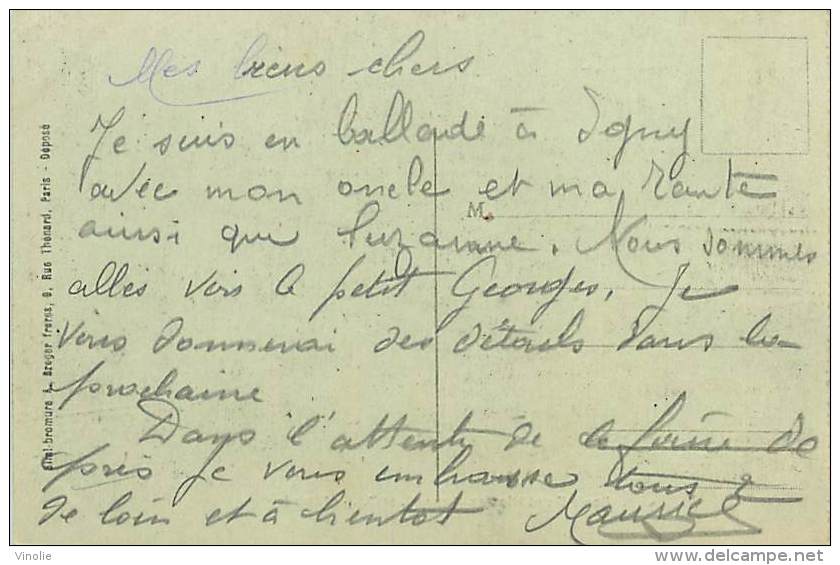 Mes biens chers
Je suis en ballade à Igny
avec mon oncle et ma tante
M.
ainsi que Suzanne. Nous sommes
allés voir le petit Georges. Je
vous donnerai des détails dans la
prochaine
Dans l'attente de le faire de
près je vous embrasse tous
de loin et à bientot Maurice
Simi-bromure A. Breger frères, 9, Rue Thenard, Paris - Déposé
Vinolie
www.delcampe.net